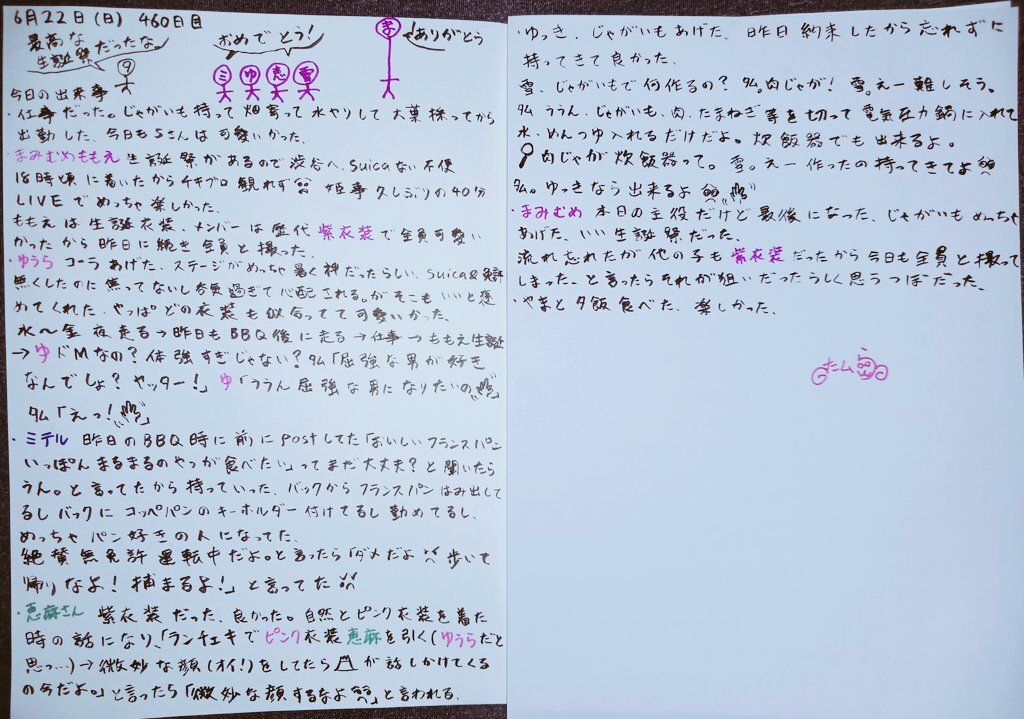 6月22日(日) 460日目
最高な
生誕祭だったな。
タ
おめでとう!
ミ ゆ 恵 雪
ま
ありがとう
今日の出来事
・仕事だった。じゃがいも持って畑寄って水やりして大葉採ってから
出勤した、今日もSさんは可愛いかった。
まみむめももえ 生誕祭があるので渋谷へ、Suicaない不便
18時頃に着いたからチキプロ観れず 姫事久しぶりの40分
LIVEでめっちゃ楽しかった。
ももえは生誕衣装、メンバーは歴代紫衣装で全員可愛い
かったから昨日に続き全員と撮った。
・ゆうら コーラあげた、ステージがめっちゃ暑く神だったらしい、Suica&免許
無くしたのに焦ってないし呑気過ぎて心配される。がそこもいいと褒
めてくれた、やっぱどの衣装も似合ってて可愛いかった。
水〜金 夜走る→昨日もBBQ後に走る→仕事→ももえ生誕
→ゆ ドMなの?体強すぎじゃない?タム「屈強な男が好き
なんでしょ?ヤッター!」ゆ「ううん屈強な男になりたいの」
タム「えっ!」
・ミテル 昨日のBBQ時に前にpostしてた「おいしいフランスパン
いっぽんまるまるのやつが食べたい」ってまだ大丈夫?と聞いたら
うん。と言ってたから持っていった、バックからフランスパンはみ出して
るしバックにコッペパンのキーホルダー付けてるし勤めてるし、
めっちゃパン好きの人になってた。
絶賛無免許運転中だよ。と言ったら「ダメだよ 歩いて
帰りなよ!捕まるよ!」と言ってた
・恵麻さん 紫衣装だった、良かった。自然とピンク衣装を着た
時の話になり、「ランチェキでピンク衣装恵麻を引く(ゆうらだと
思っ…)→微妙な顔(オイ!)をしてたら が話しかけてくる
の今だよ。」と言ったら「微妙な顔するなよ」と言われる。
・ゆっき、じゃがいもあげた、昨日約束したから忘れずに
持ってきて良かった。
雪、じゃがいもで何作るの?タム。肉じゃが!雪。えー難しそう。
タム ううん、じゃがいも、肉、たまねぎ等を切って電気圧力鍋に入れて
水、めんつゆ入れるだけだよ。炊飯器でも出来るよ。
肉じゃが炊飯器って。雪。えー作ったの持ってきてよ
タム。ゆっきなら出来るよ
・まみむめ 本日の主役だけど最後になった、じゃがいもめっちゃ
あげた、いい生誕祭だった。
流れ忘れたが他の子も紫衣装だったから今日も全員と撮って
しまった、と言ったらそれが狙いだったらしく思うつぼだった。
・やまと夕飯食べた、楽しかった、
たム
ら